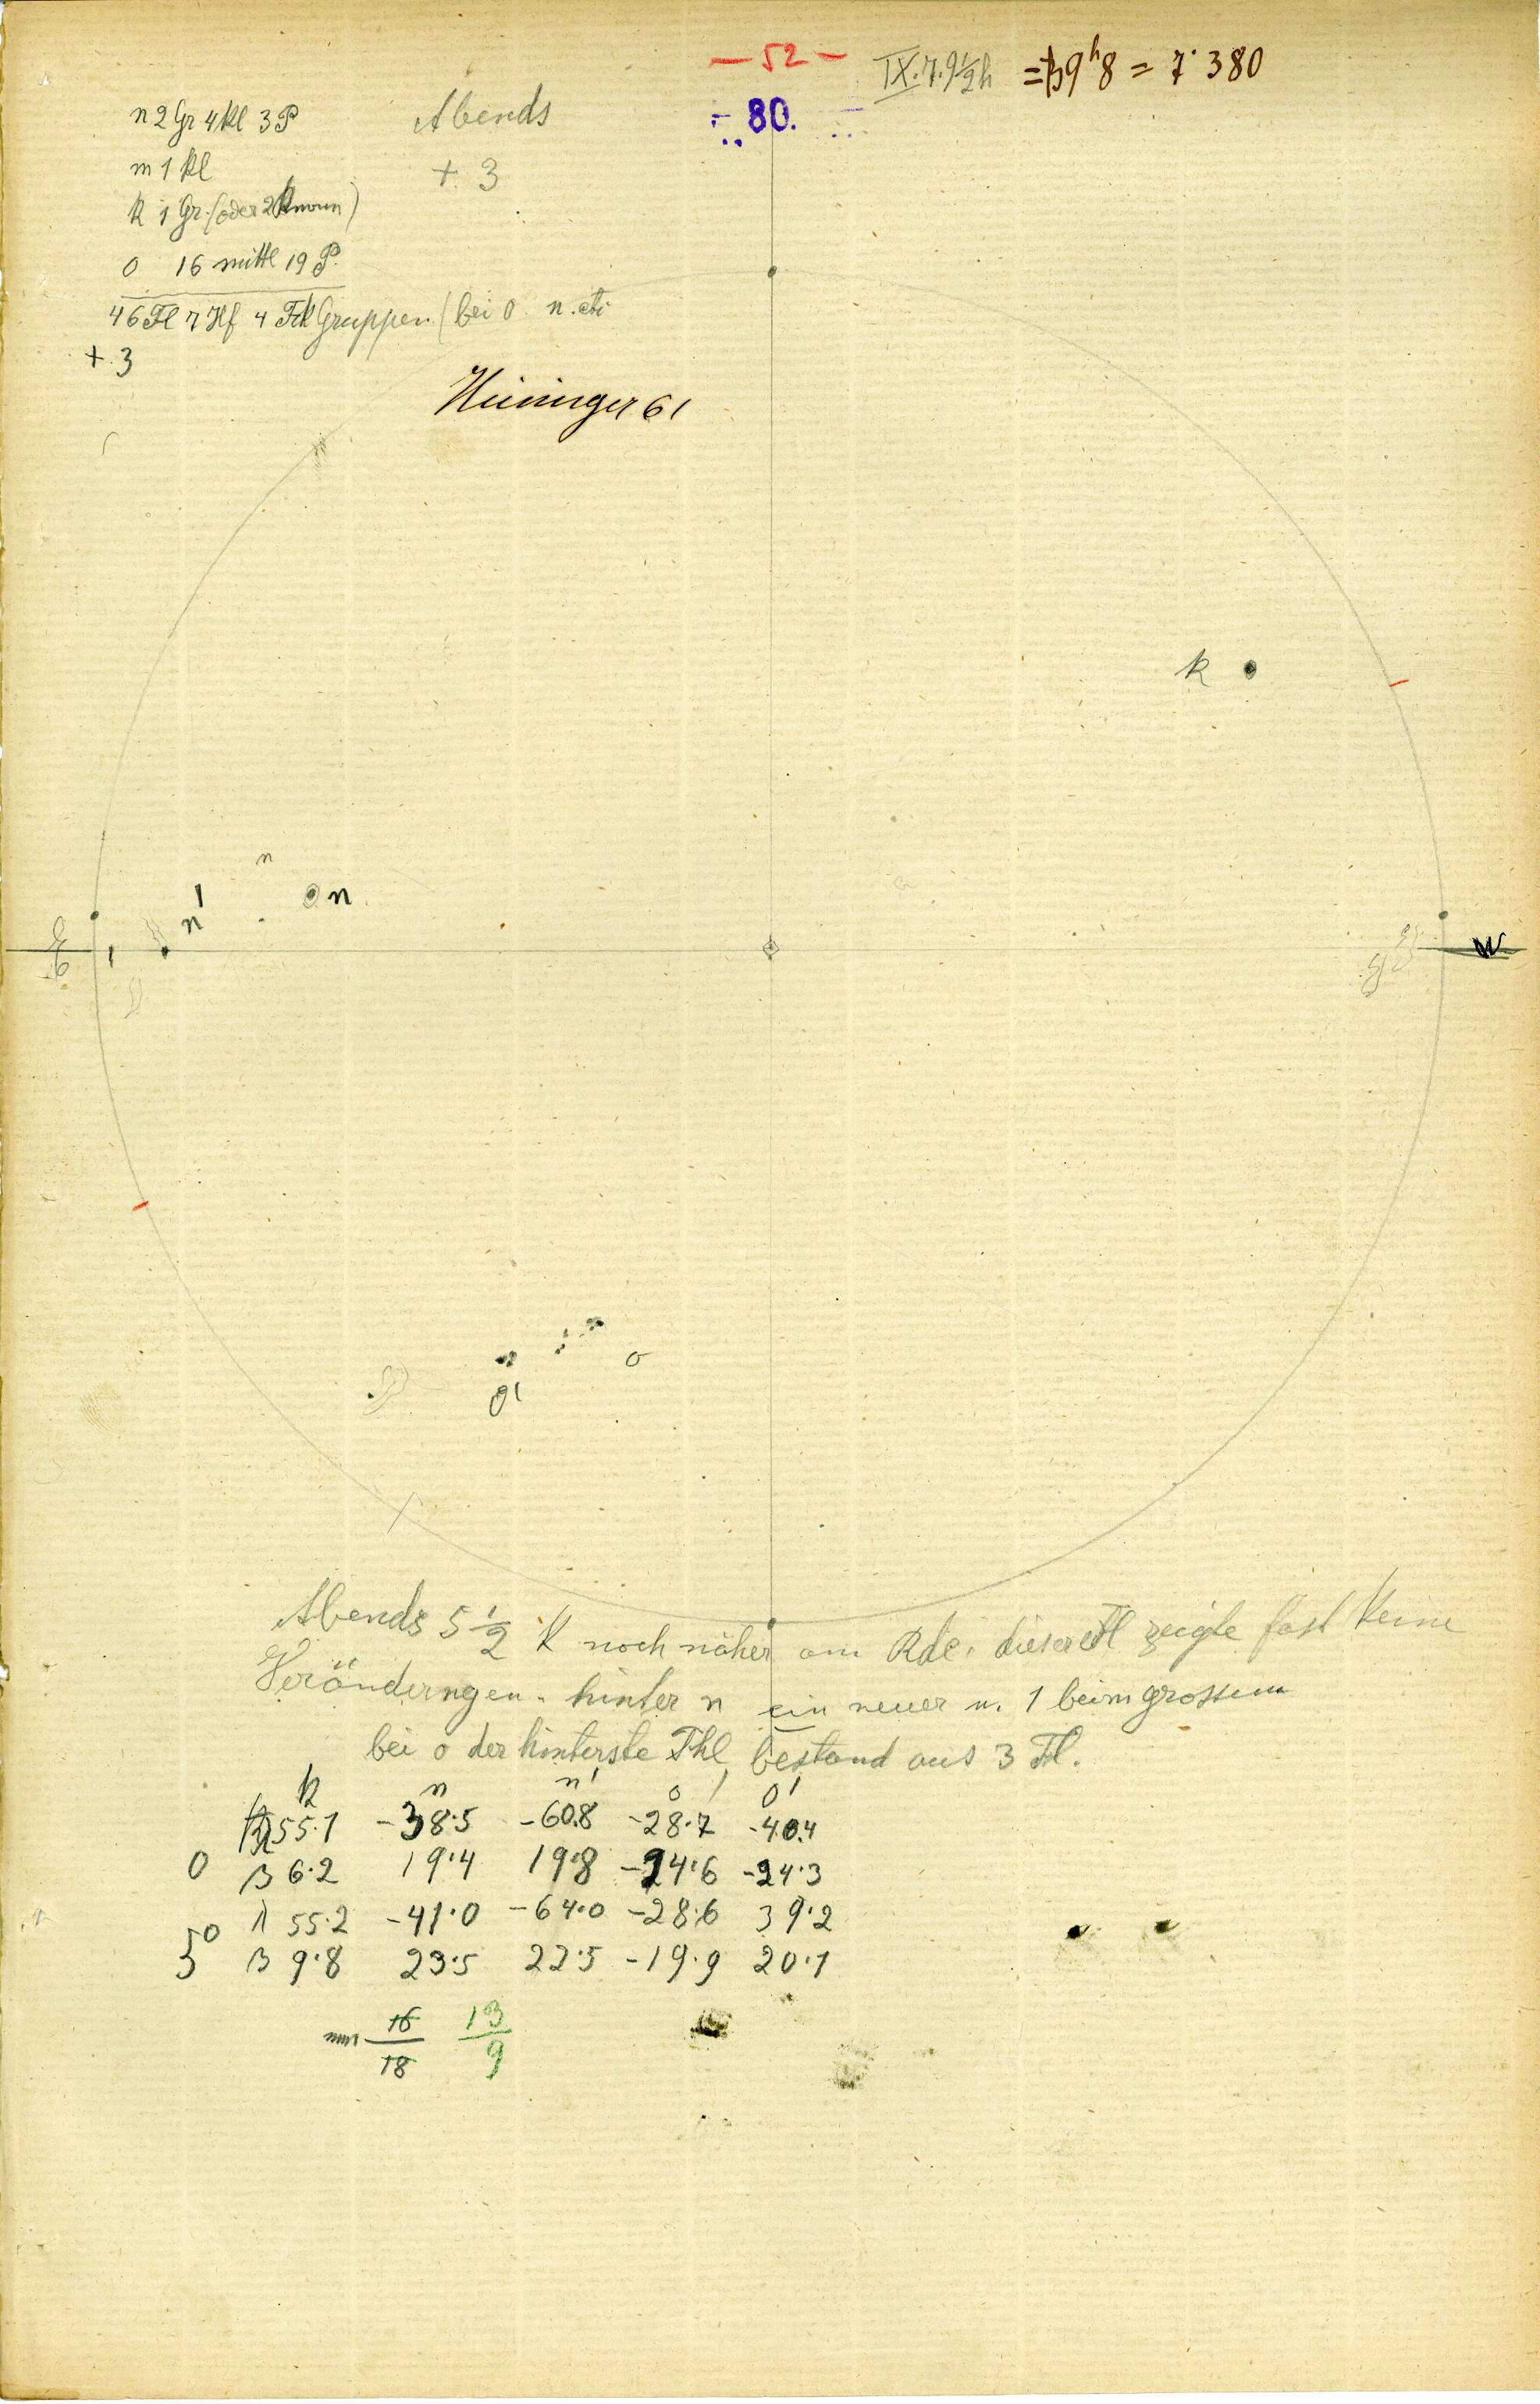 — 52 —
IX. 7. 9 1/2 h = 9h8 = 7·380
80.
n 2 Gr 4 Kl 3 P
Abends
m 1 Kl
+ 3
k 1 Gr. (oder 2 Knoun)
o 16 mittl 19 P.
46 Fl 7 Hf 4 Fkl Gruppen (bei o
+ 3
61
k
n
n
n'
1
W
o
o'
Abends 5 1/2 k noch näher am Rde. dieser Fl zeigte fast keine
Veränderngen. hinter n ein neuer u. 1 beim grossen
bei o der hinterste Thl bestand aus 3 Fl.
k n n' o o'
55·1 -38·5 -60.8 -28·7 -40.4
0 β 6·2 19·4 19·8 -24·6 -24·3
λ 55·2 -41·0 -64·0 -28·6 39·2
5° β 9·8 23·5 22·5 -19·9 20·1
16/18 13/9